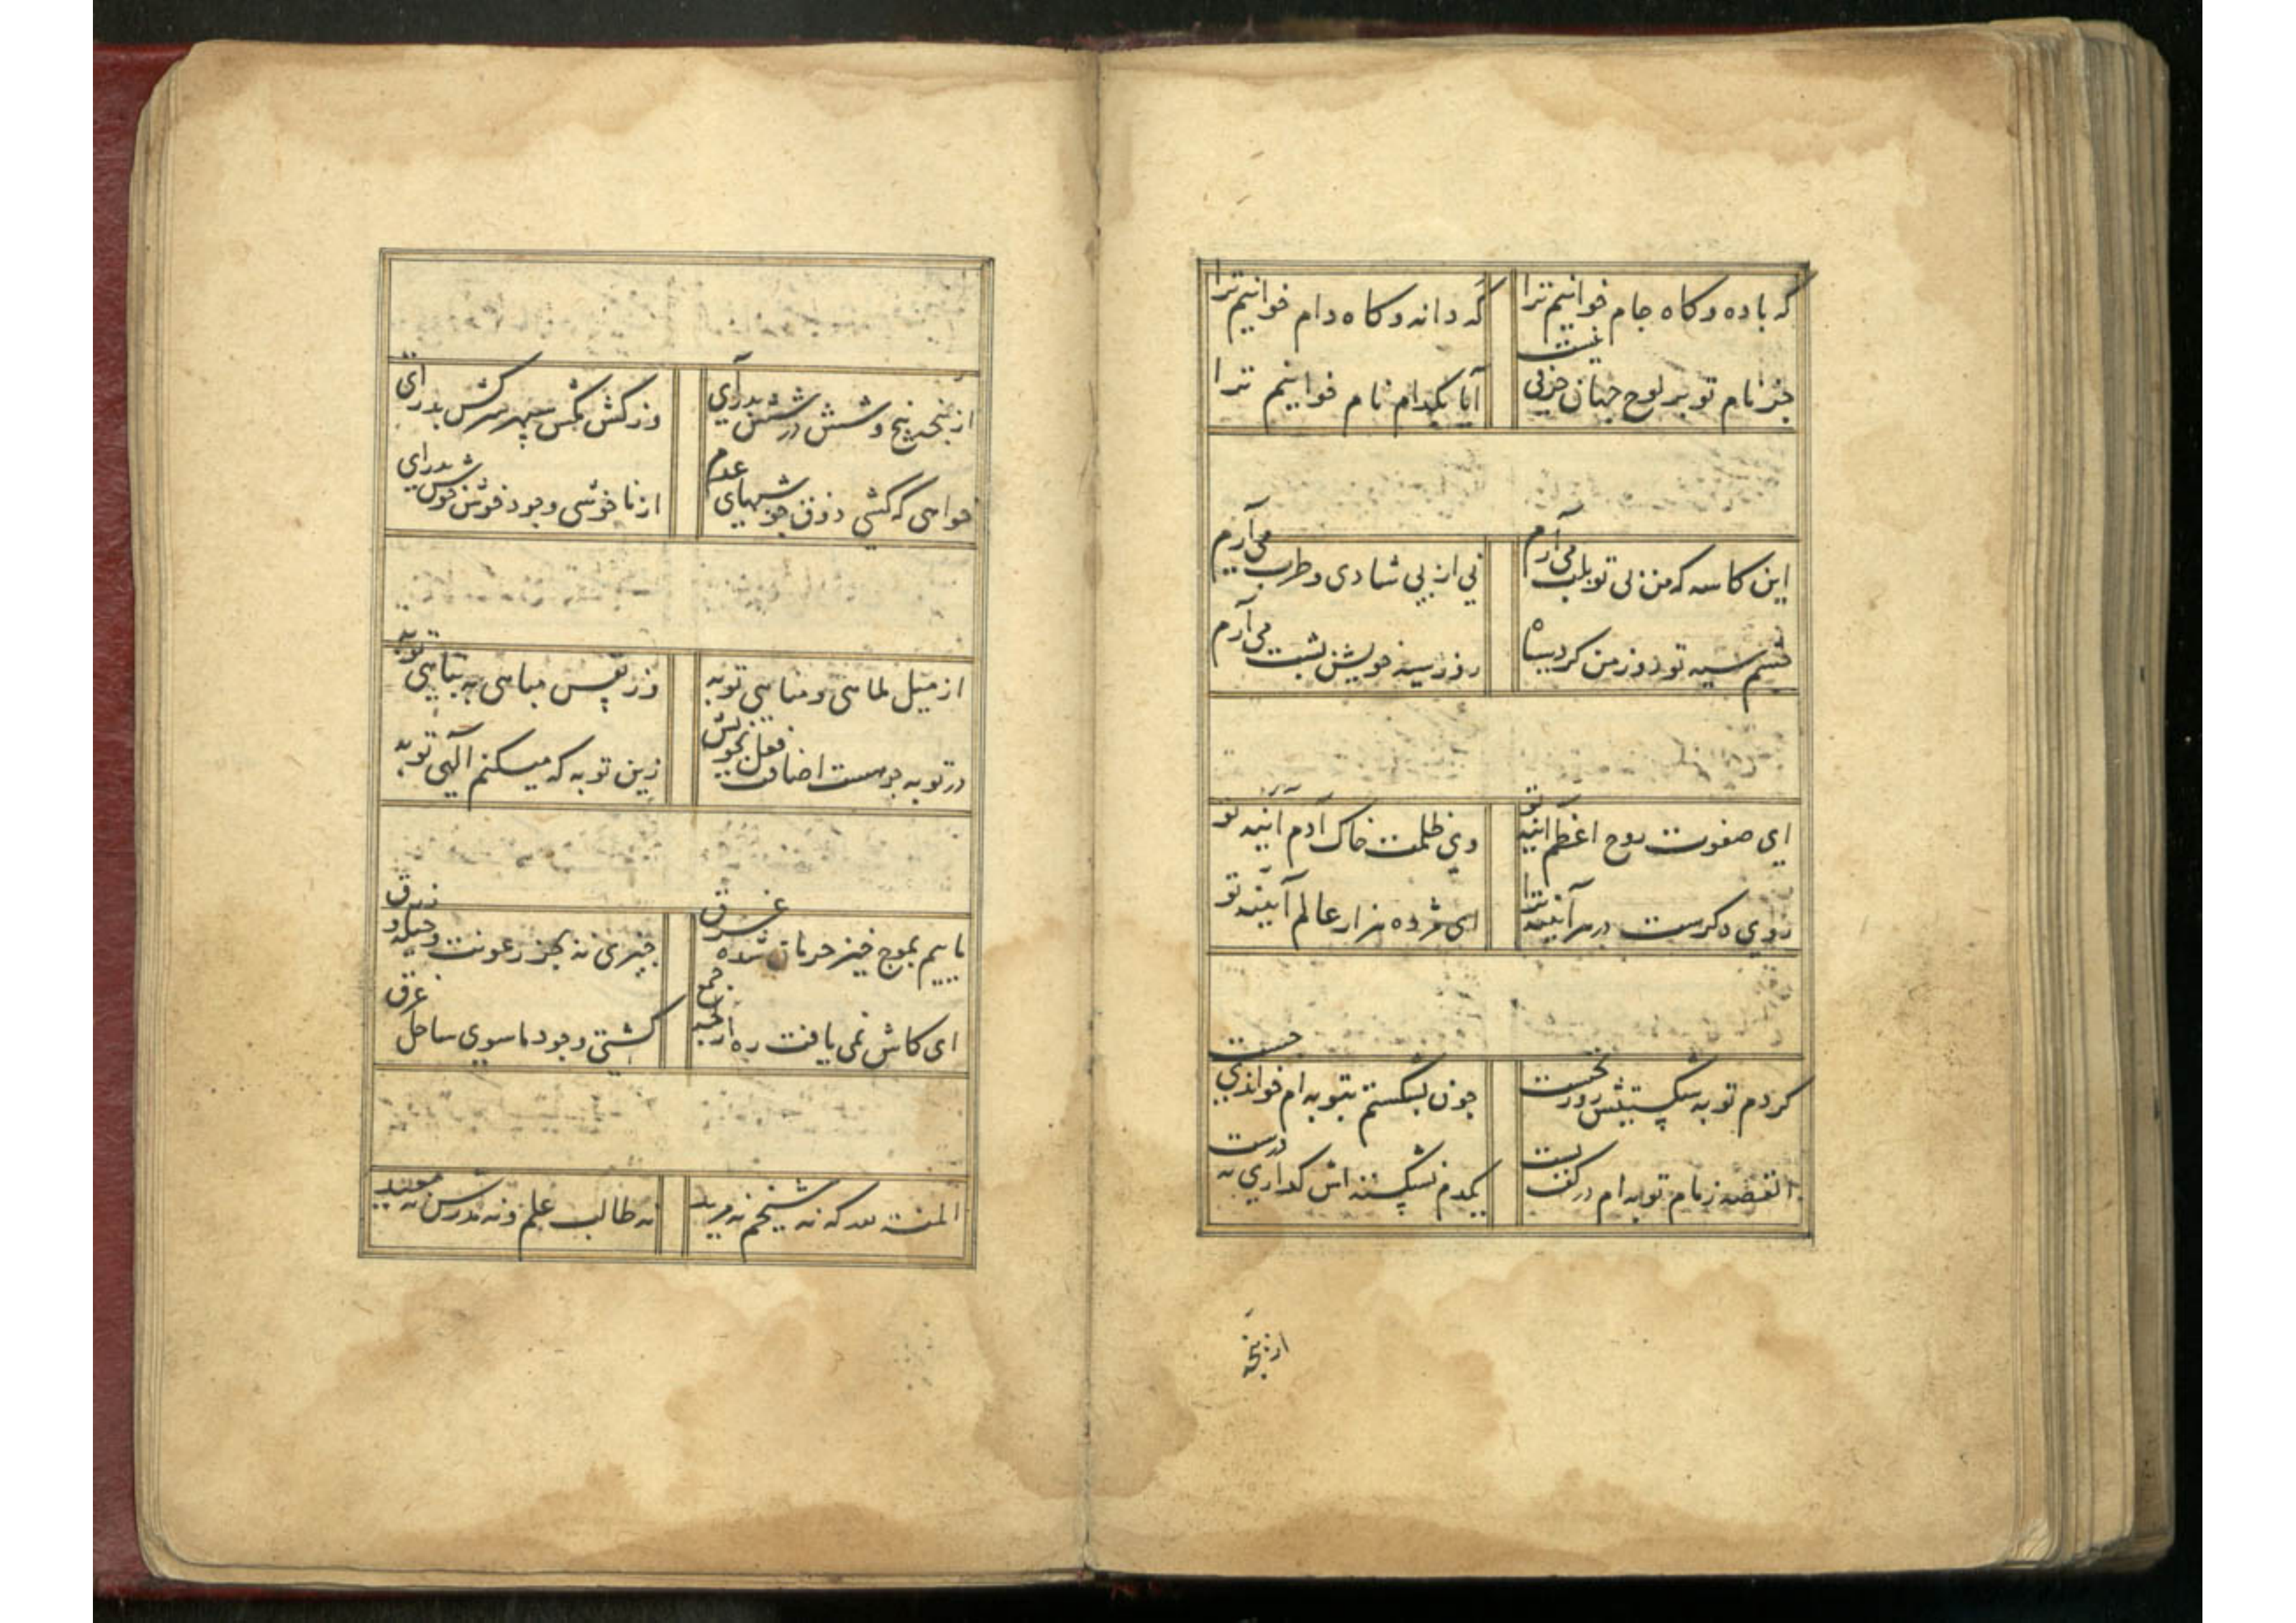 گه باده و کاه جام خوانیم ترا
گه دانه و کاه دام خوانیم ترا
جز نام تو بر لوح جهان حرفی نیست
آیا بکدام نام خوانیم ترا
این کاسه که من بی تو بلب می آرم
نی از پی شادی و طرب می آرم
چشم سیه تو روز من کرد سیاه
روز سیه خویش بشب می آرم
ای صفوت روح اعظم آئینه تو
وی ظلمت خاک آدم آئینه تو
روی دکرست در هر آئینه ترا
ای هژده هزار عالم آئینه تو
کردم توبه شکستیش روز نخست
چون بشکستم بتوبه ام خواندی چست
القصه زمام توبه ام در کف تست
یکدم نشکسته اش کذاری نه درست
از پنجه
از پنجه پنج و شش در شش بدرآی
وز کش مکش سپهر سرکش بدرآی
خواهی که کشی ذوق خوشیهای عدم
از ناخوشی وجود خوش خوش بدرآی
از میل ملاهی و مناهی توبه
وز نفس مباهی به تباهی توبه
در توبه چو هست اضافت فعل بخویش
زین توبه که میکنم الهی توبه
ماییم بموج خیز حرمان شده غرق
چیزی نه بجز رعونت و حیله و زرق
ای کاش نمی یافت ره از لجه جمع
کشتی وجود ما سوی ساحل فرق
المنة لله که نه شیخم نه مرید
نه طالب علم و نه مدرس نه معید